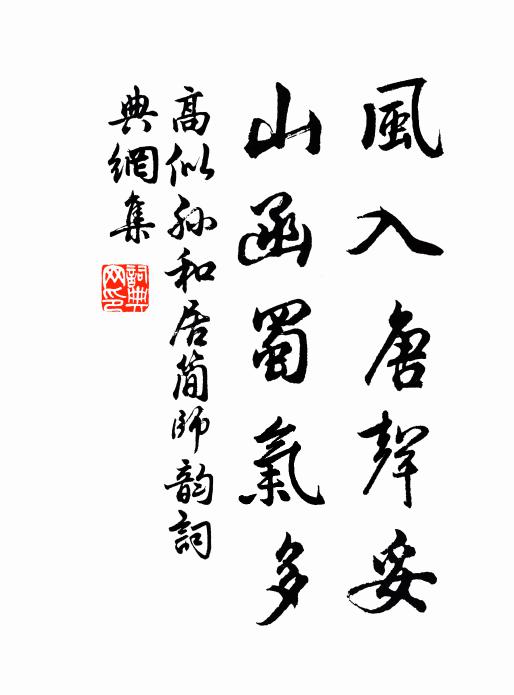 風入唐聲妥
山函蜀氣多
高似孫和居簡師韵詞
典網集
詞典網印